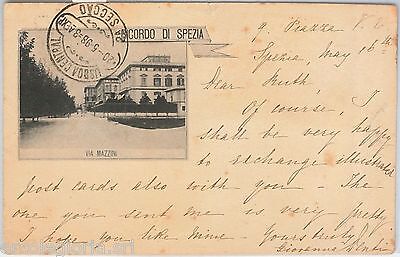 RICORDO DI SPEZIA
VIA MAZZINI
LISBOA CENTRAL
20-5-98-5-
SECCAO
9. Piazza V. E.
Spezia, May 16th
Dear Ruth,
Of course, I
shall be very happy
to exchange illustrated
post cards also with you - The
one you sent me is very pretty
I hope you like mine. Yours truly,
Giovanna